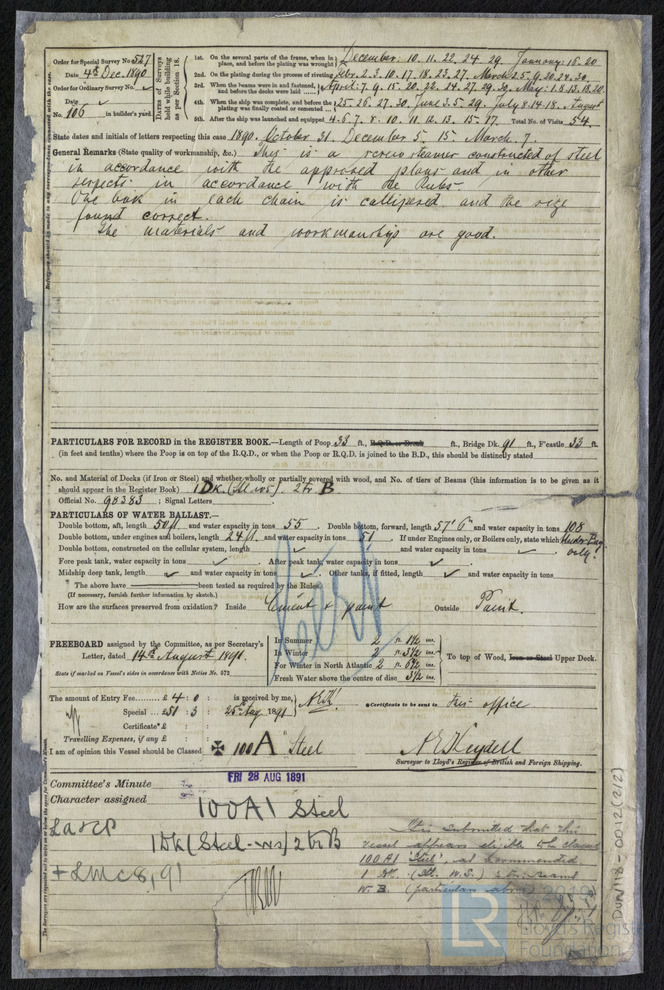 Order for Special Survey No 527
Date 4th Dec. 1890
Order for Ordinary Survey No. ✓
Date ✓
No. 106 in builder's yard.
Dates of Surveys held while building as per Section 18.
1st. On the several parts of the frame, when in place, and before the plating was wrought December: 10. 11. 22. 24. 29. January: 16. 20
2nd. On the plating during the process of riveting Febr. 2. 3. 10. 17. 18. 23. 27. March 2.5. 9. 20. 24. 30.
3rd. When the beams were in and fastened, and before the decks were laid April: 7. 9. 15. 20. 22. 24. 27. 29. 30. May: 1. 8. 13. 18. 20.
4th. When the ship was complete, and before the plating was finally coated or cemented 25. 26. 27. 30. June 3. 5. 29. July 8. 14. 18. August
5th. After the ship was launched and equipped 4. 6. 7. 8. 10. 11. 12. 13. 15. 17. Total No. of Visits 54.
State dates and initials of letters respecting this case 1890. October 31. December 5. 15. March. 7.
General Remarks (State quality of workmanship, &c.) This is a screw steamer constructed of steel
in accordance with the approved plans and in other
respects in accordance with the Rules.
One link in each chain is callipered and the size
found correct.
The materials and workmanship are good.
PARTICULARS FOR RECORD in the REGISTER BOOK.—Length of Poop 33 ft., R.Q.D. or Break ft., Bridge Dk. 91 ft., F'castle 33 ft.
(in feet and tenths) where the Poop is on top of the R.Q.D., or when the Poop or R.Q.D. is joined to the B.D., this should be distinctly stated
No. and Material of Decks (if Iron or Steel) and whether wholly or partially covered with wood, and No. of tiers of Beams (this information is to be given as it
should appear in the Register Book) 1Dk. (Stl. ws). 2tr B
Official No. 98383 ; Signal Letters
PARTICULARS OF WATER BALLAST.—
Double bottom, aft, length 50ft and water capacity in tons 55 Double bottom, forward, length 57' 6" and water capacity in tons 108
Double bottom, under engines and boilers, length 24ft. and water capacity in tons 51 If under Engines only, or Boilers only, state which Under Eng only.
Double bottom, constructed on the cellular system, length ✓ and water capacity in tons ✓
Fore peak tank, water capacity in tons ✓ After peak tank, water capacity in tons ✓
Midship deep tank, length ✓ and water capacity in tons ✓ Other tanks, if fitted, length ✓ and water capacity in tons
* The above have been tested as required by the Rules
(If necessary, furnish further information by sketch.)
How are the surfaces preserved from oxidation? Inside Cement & paint Outside Paint.
FREEBOARD assigned by the Committee, as per Secretary's
Letter, dated 14th August 1890.
State if marked on Vessel's sides in accordance with Notice No. 572
In Summer 2 ft. 1½ ins.
In Winter 2 ft. 3½ ins.
For Winter in North Atlantic 2 ft. 6½ ins.
Fresh Water above the centre of disc 3½ ins.
To top of Wood, Iron or Steel Upper Deck.
The amount of Entry Fee £4 : 0 : is received by me,
Special £51 : 3 : 25th Aug 1891
Certificate* £ :
Travelling Expenses, if any £ :
*Certificate to be sent to this office
I am of opinion this Vessel should be Classed ✠ 100A Steel
Surveyor to Lloyd's Register of British and Foreign Shipping.
Committee's Minute FRI 28 AUG 1891
Character assigned 100A1 Steel
La&CP
1Dk (Steel-ws) 2trB
+ LMC 8, 91
It is submitted that this
vessel appears eligible to be classed
100A1 'Steel', as recommended
W. B. (particulars above)
DUN/118-0012 (2/2)
LR
2019
Lloyd's Register
Foundation